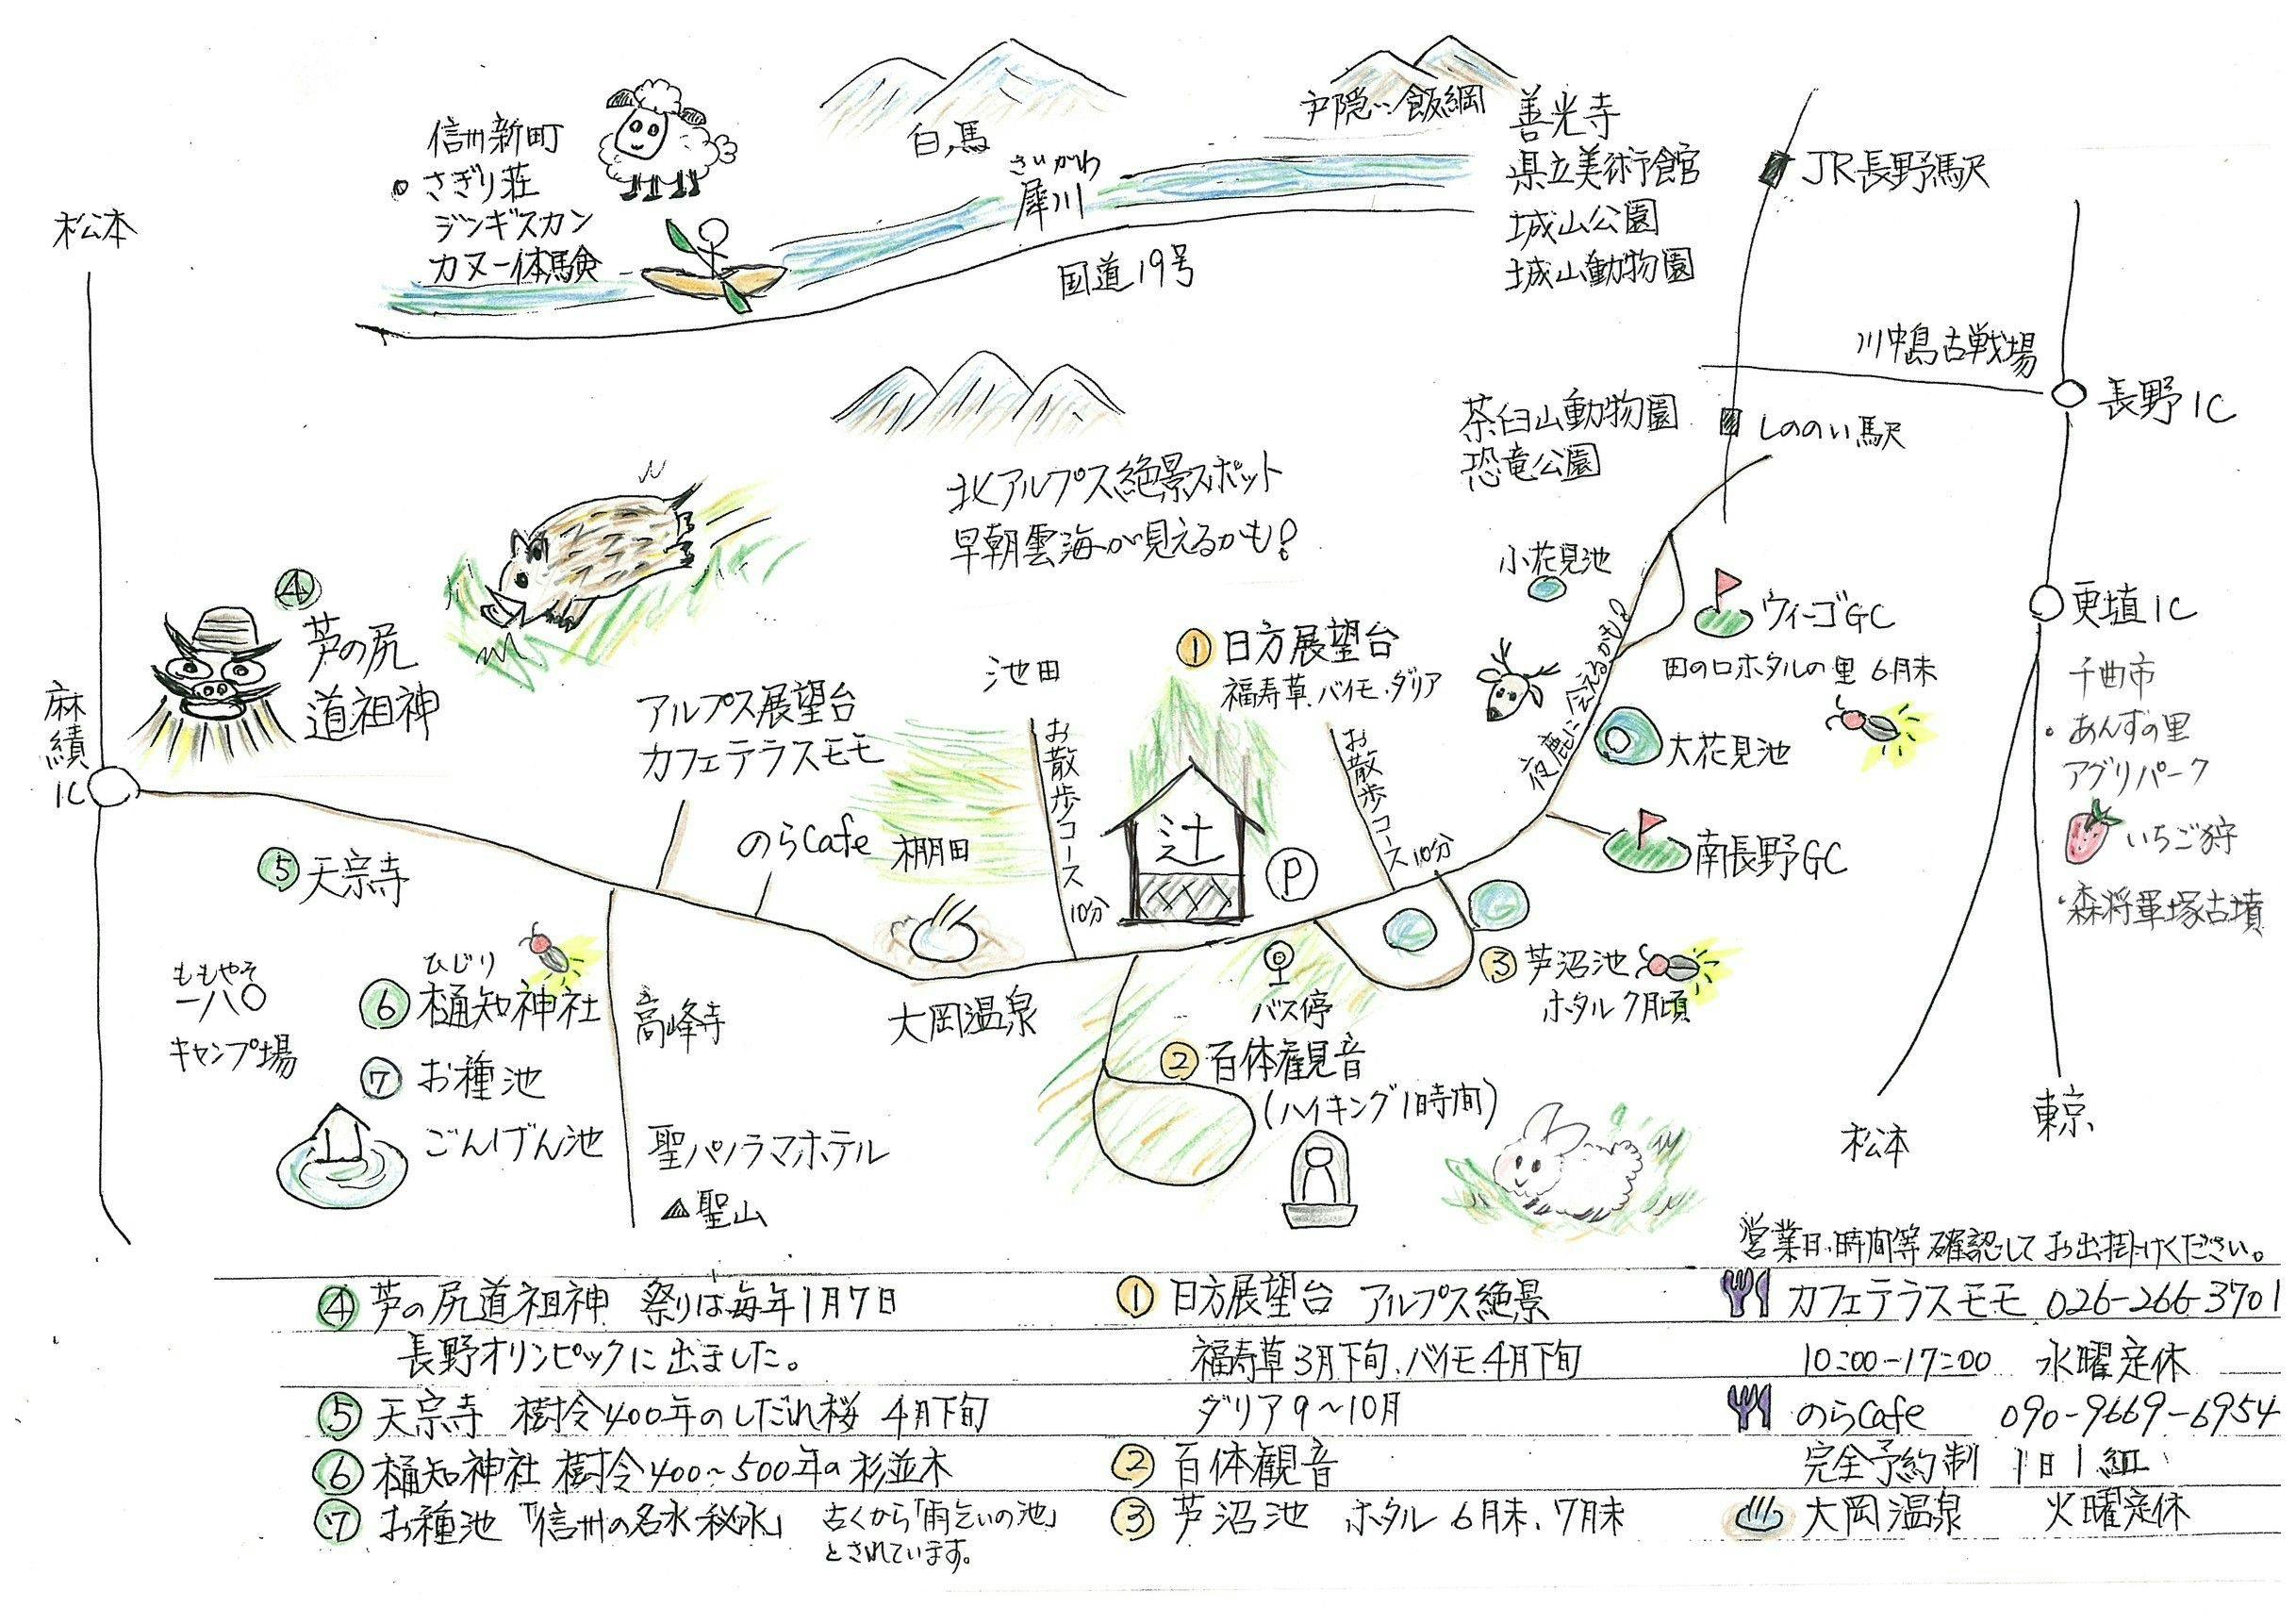 信州新町
さぎり荘
ジンギスカン
カヌー体験
白馬
さいがわ
犀川
国道19号
戸隠・飯綱
善光寺
県立美術館
城山公園
城山動物園
JR長野駅
松本
川中島古戦場
長野IC
茶臼山動物園
恐竜公園
しののい駅
北アルプス絶景スポット
早朝雲海が見えるかも!
小花見池
ウィーゴGC
田の口ホタルの里 6月末
更埴IC
千曲市
・あんずの里
アグリパーク
いちご狩
・森将軍塚古墳
④
芦の尻
道祖神
麻績
IC
アルプス展望台
カフェテラスモモ
池田
お散歩コース 10分
①日方展望台
福寿草、バイモ、ダリア
お散歩コース 10分
夜鹿に会えるかも!
大花見池
南長野GC
辻
P
のらCafe
棚田
⑤天宗寺
ももやそ
一八〇
キャンプ場
ひじり
⑥樋知神社
⑦お種池
ごんげん池
高峰寺
聖パノラマホテル
▲聖山
大岡温泉
バス停
②百体観音
(ハイキング1時間)
③芦沼池
ホタル7月頃
松本
東京
営業日・時間等確認してお出掛けください。
④芦の尻道祖神 祭りは毎年1月7日
長野オリンピックに出ました。
⑤天宗寺 樹令400年のしだれ桜 4月下旬
⑥樋知神社 樹令400~500年の杉並木
⑦お種池「信州の名水・秘水」 古くから「雨乞いの池」
とされています。
①日方展望台 アルプス絶景
福寿草3月下旬、バイモ4月下旬
ダリア9~10月
②百体観音
③芦沼池 ホタル6月末、7月末
カフェテラスモモ 026-266-3701
10:00-17:00 水曜定休
のらCafe 090-9669-6954
完全予約制 1日1組
大岡温泉 火曜定休